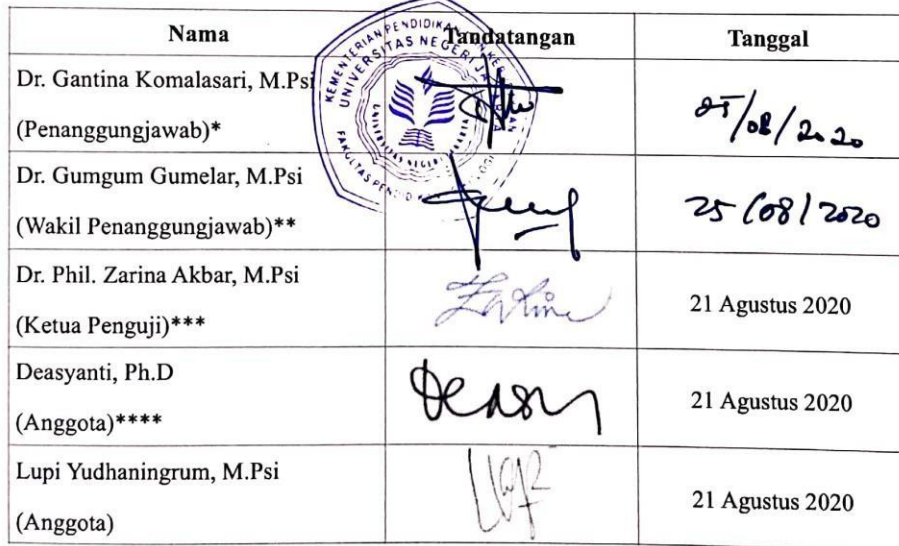 Nama Tandatangan Tanggal
Dr. Gantina Komalasari, M.Psi
(Penanggungjawab)*
25/08/2020
Dr. Gumgum Gumelar, M.Psi
(Wakil Penanggungjawab)**
25/08/2020
Dr. Phil. Zarina Akbar, M.Psi
(Ketua Penguji)***
21 Agustus 2020
Deasyanti, Ph.D
(Anggota)****
21 Agustus 2020
Lupi Yudhaningrum, M.Psi
(Anggota)
21 Agustus 2020
KEMENTERIAN PENDIDIKAN
UNIVERSITAS NEGERI
FAKULTAS